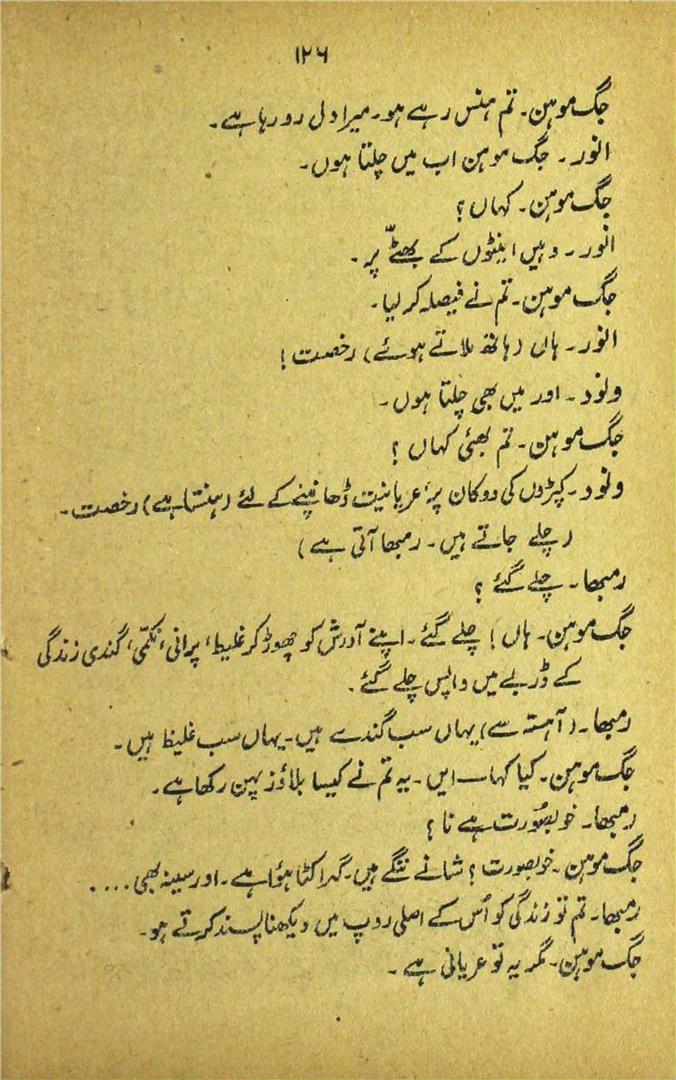 ۱۲۶
جگ موہن۔ تم ہنس رہے ہو۔ میرا دل رو رہا ہے۔
انور۔ جگ موہن اب میں چلتا ہوں۔
جگ موہن۔ کہاں؟
انور۔ وہیں اینٹوں کے بھٹّے پر۔
جگ موہن۔ تم نے فیصلہ کر لیا۔
انور۔ ہاں (ہاتھ ملاتے ہوئے) رخصت!
ونود۔ اور میں بھی چلتا ہوں۔
جگ موہن۔ تم بھئی کہاں؟
ونود۔ کپڑوں کی دوکان پر، عریانیت ڈھانپنے کے لئے (ہنستا ہے) رخصت۔
(چلے جاتے ہیں۔ رمبھا آتی ہے)
رمبھا۔ چلے گئے؟
جگ موہن۔ ہاں! چلے گئے۔ اپنے آدرش کو چھوڑ کر غلیظ، پرانی، نکمّی، گندی زندگی
کے ڈربے میں واپس چلے گئے۔
رمبھا۔ (آہستہ سے) یہاں سب گندے ہیں۔ یہاں سب غلیظ ہیں۔
جگ موہن۔ کیا کہا۔ ایں۔ یہ تم نے کیسا بلاؤز پہن رکھا ہے۔
رمبھا۔ خوبصُورت ہے نا؟
جگ موہن۔ خوبصورت؟ شانے ننگے ہیں۔ گہرا کٹا ہؤا ہے۔ اور سینہ بھی....
رمبھا۔ تم تو زندگی کو اُس کے اصلی روپ میں دیکھنا پسند کرتے ہو۔
جگ موہن۔ مگر یہ تو عریانی ہے۔